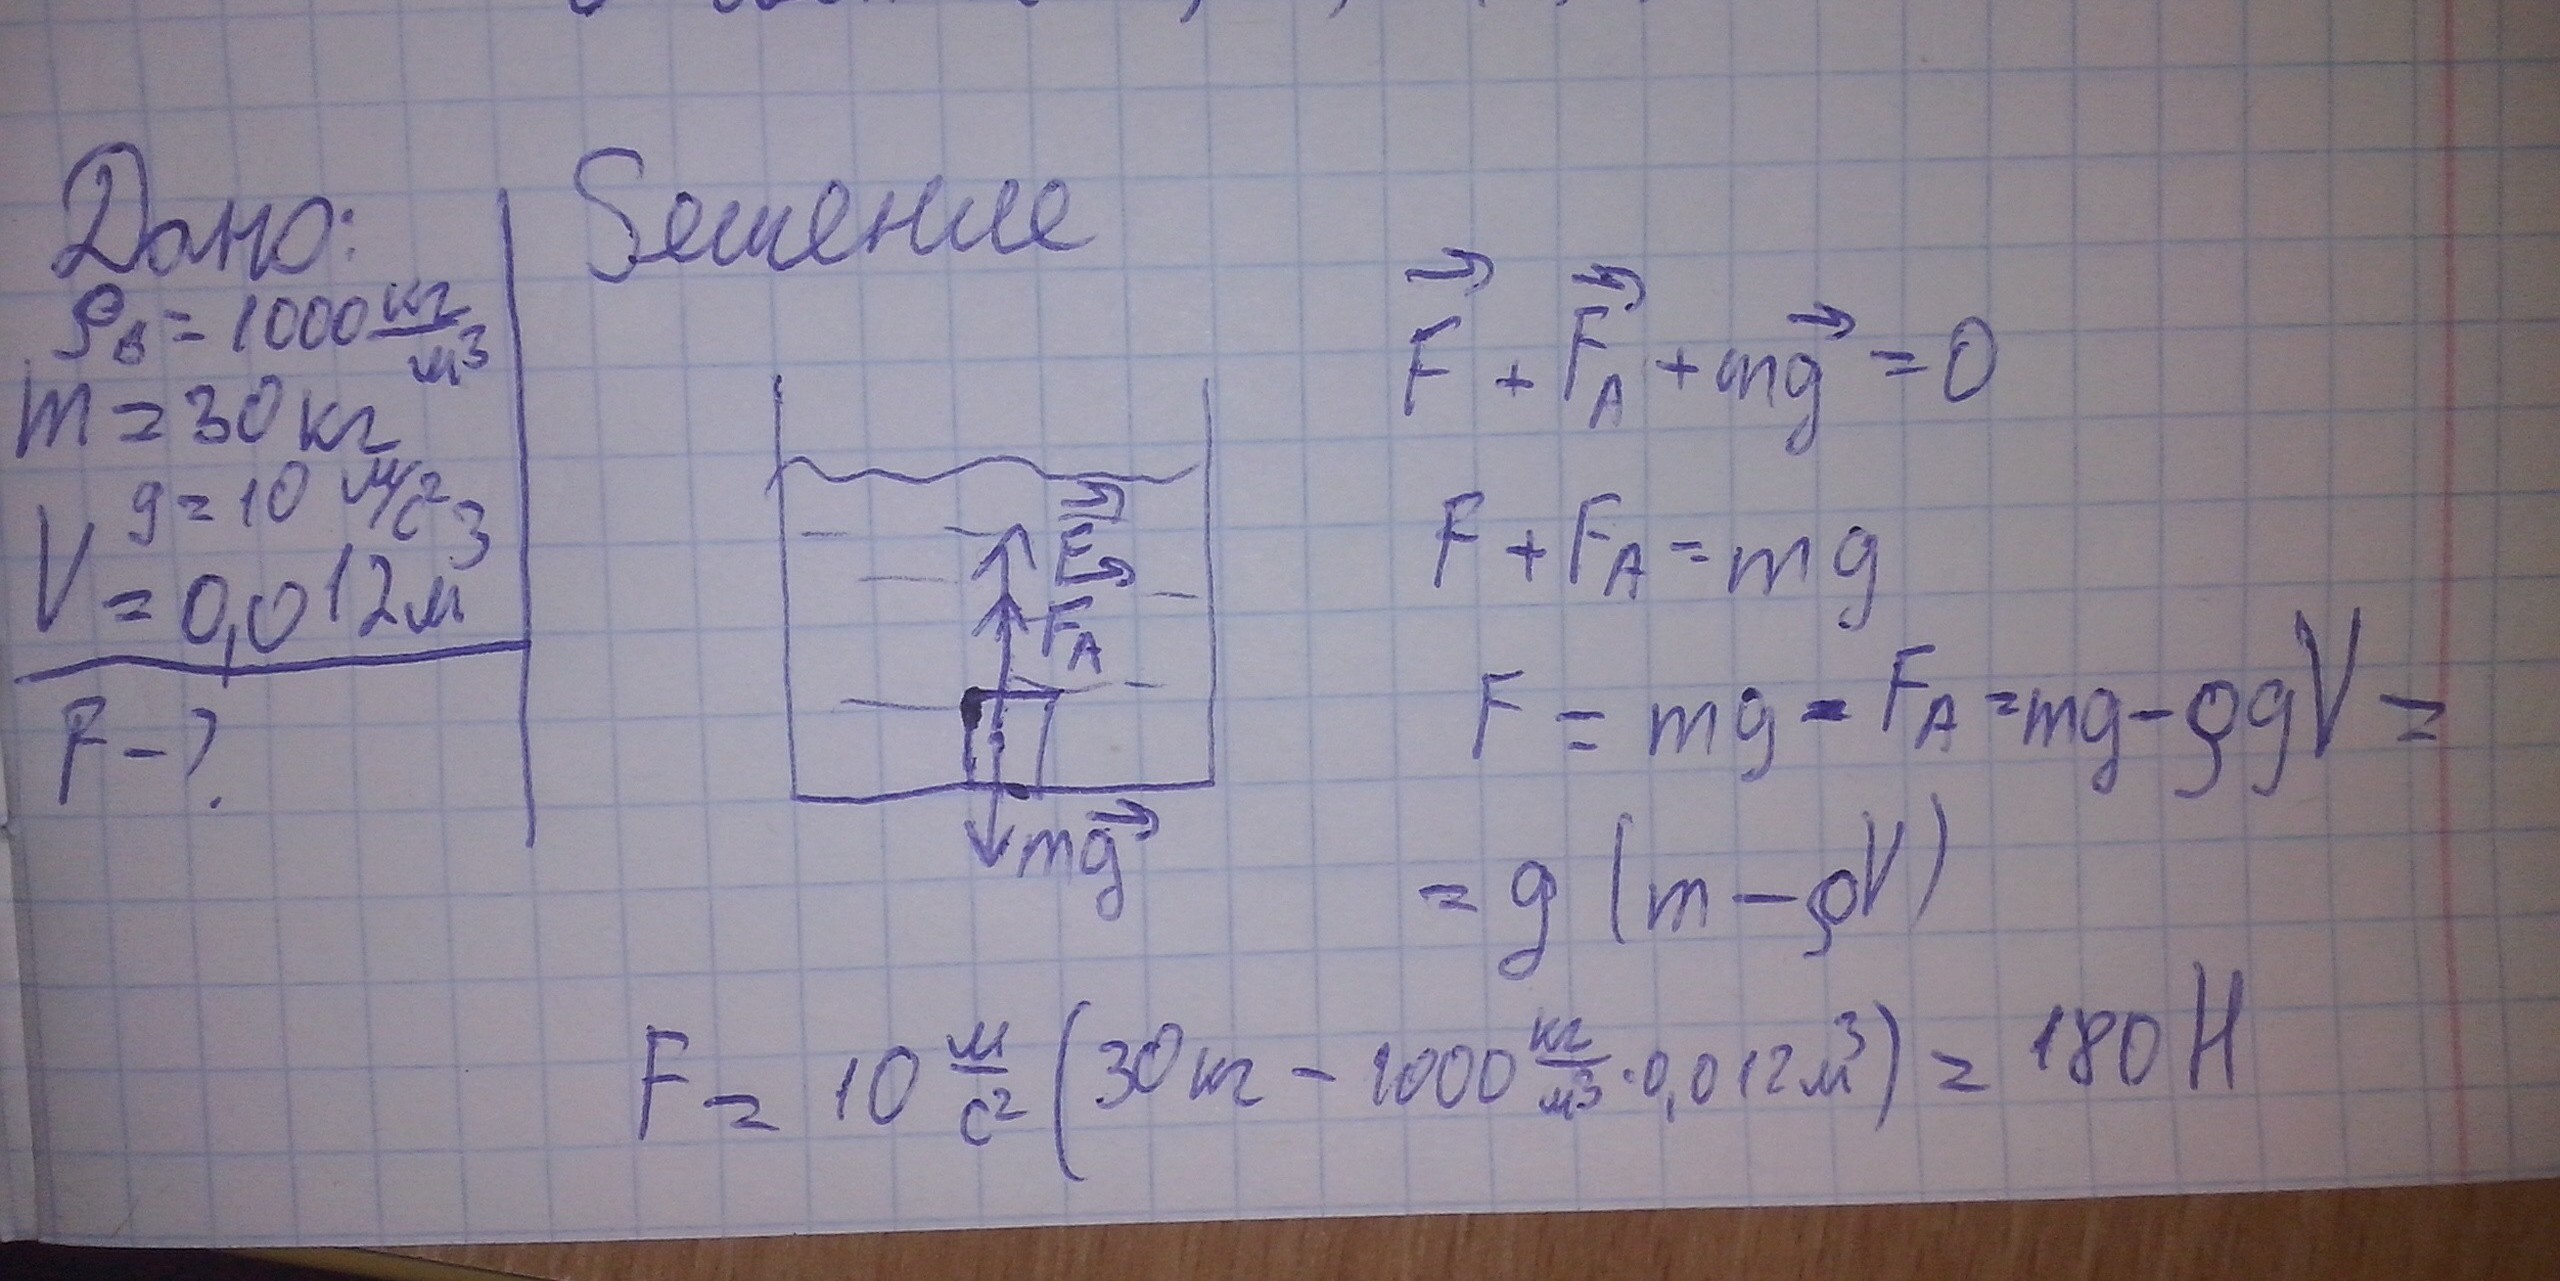 Дано:
ρв = 1000 кг/м³
m = 30 кг
g = 10 м/с²
V = 0,012 м³
F - ?
Решение
F
FA
mg
F + FA + mg = 0
F + FA = mg
F = mg - FA = mg - ρgV =
= g (m - ρV)
F = 10 м/с² (30 кг - 1000 кг/м³ · 0,012 м³) = 180 Н